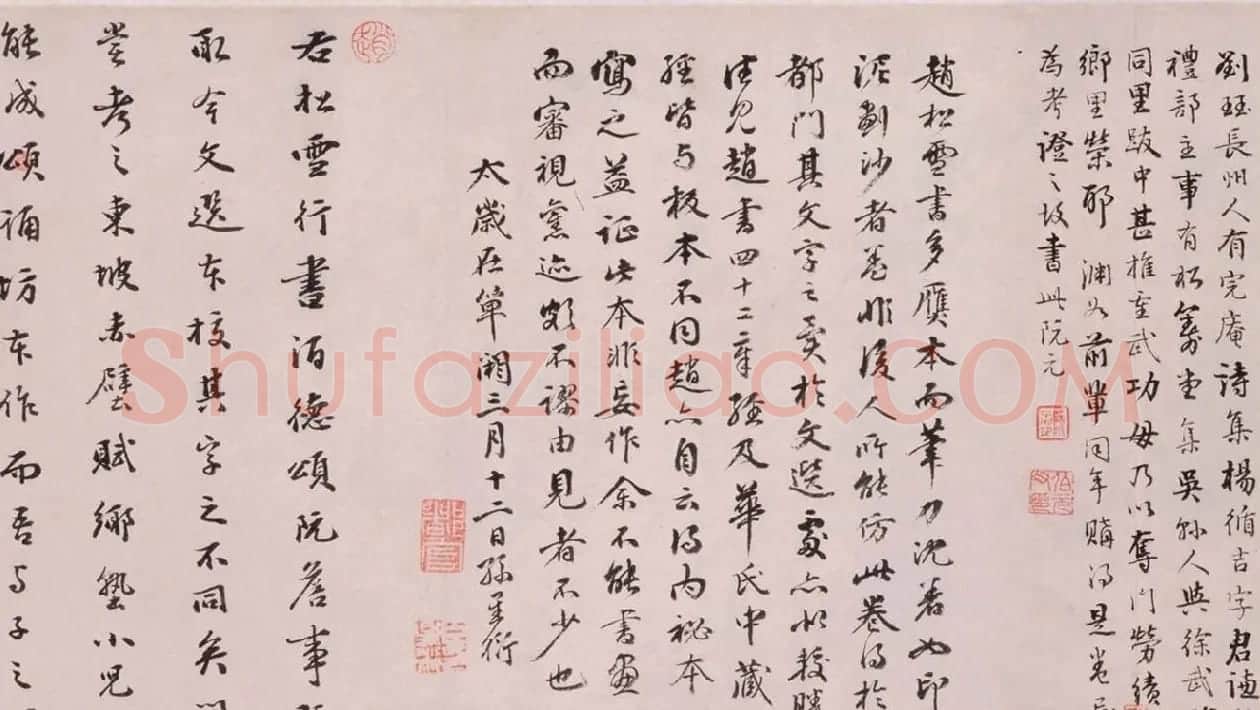 劉珏長州人有完庵詩集楊循吉字君謙
禮部主事有松籌堂集吳縣人與徐武
同里跋中甚推重武功毋乃以奪門勞績
鄉里榮耶淵如前輩同年購得是卷
為考證之故書此阮元
趙松雪書多贋本而筆力沈著如印
泥劃沙者差非後人所能仿此卷得於
都門其文字之異於文選處亦以較勝
往見趙書四十二章經及華氏中藏
經皆與板本不同趙亦自云得內祕本
寫之益證此本非妄作余不能書畫
而審視舊迹頗不謬由見者不少也
太歲在單閼三月十二日孫星衍
右松雪行書酒德頌阮詹事
取今文選本校其字之不同矣
嘗考之東坡赤壁賦鄉塾小兒
能成頌誦坊本作而吾與子之
shufaziliao.com